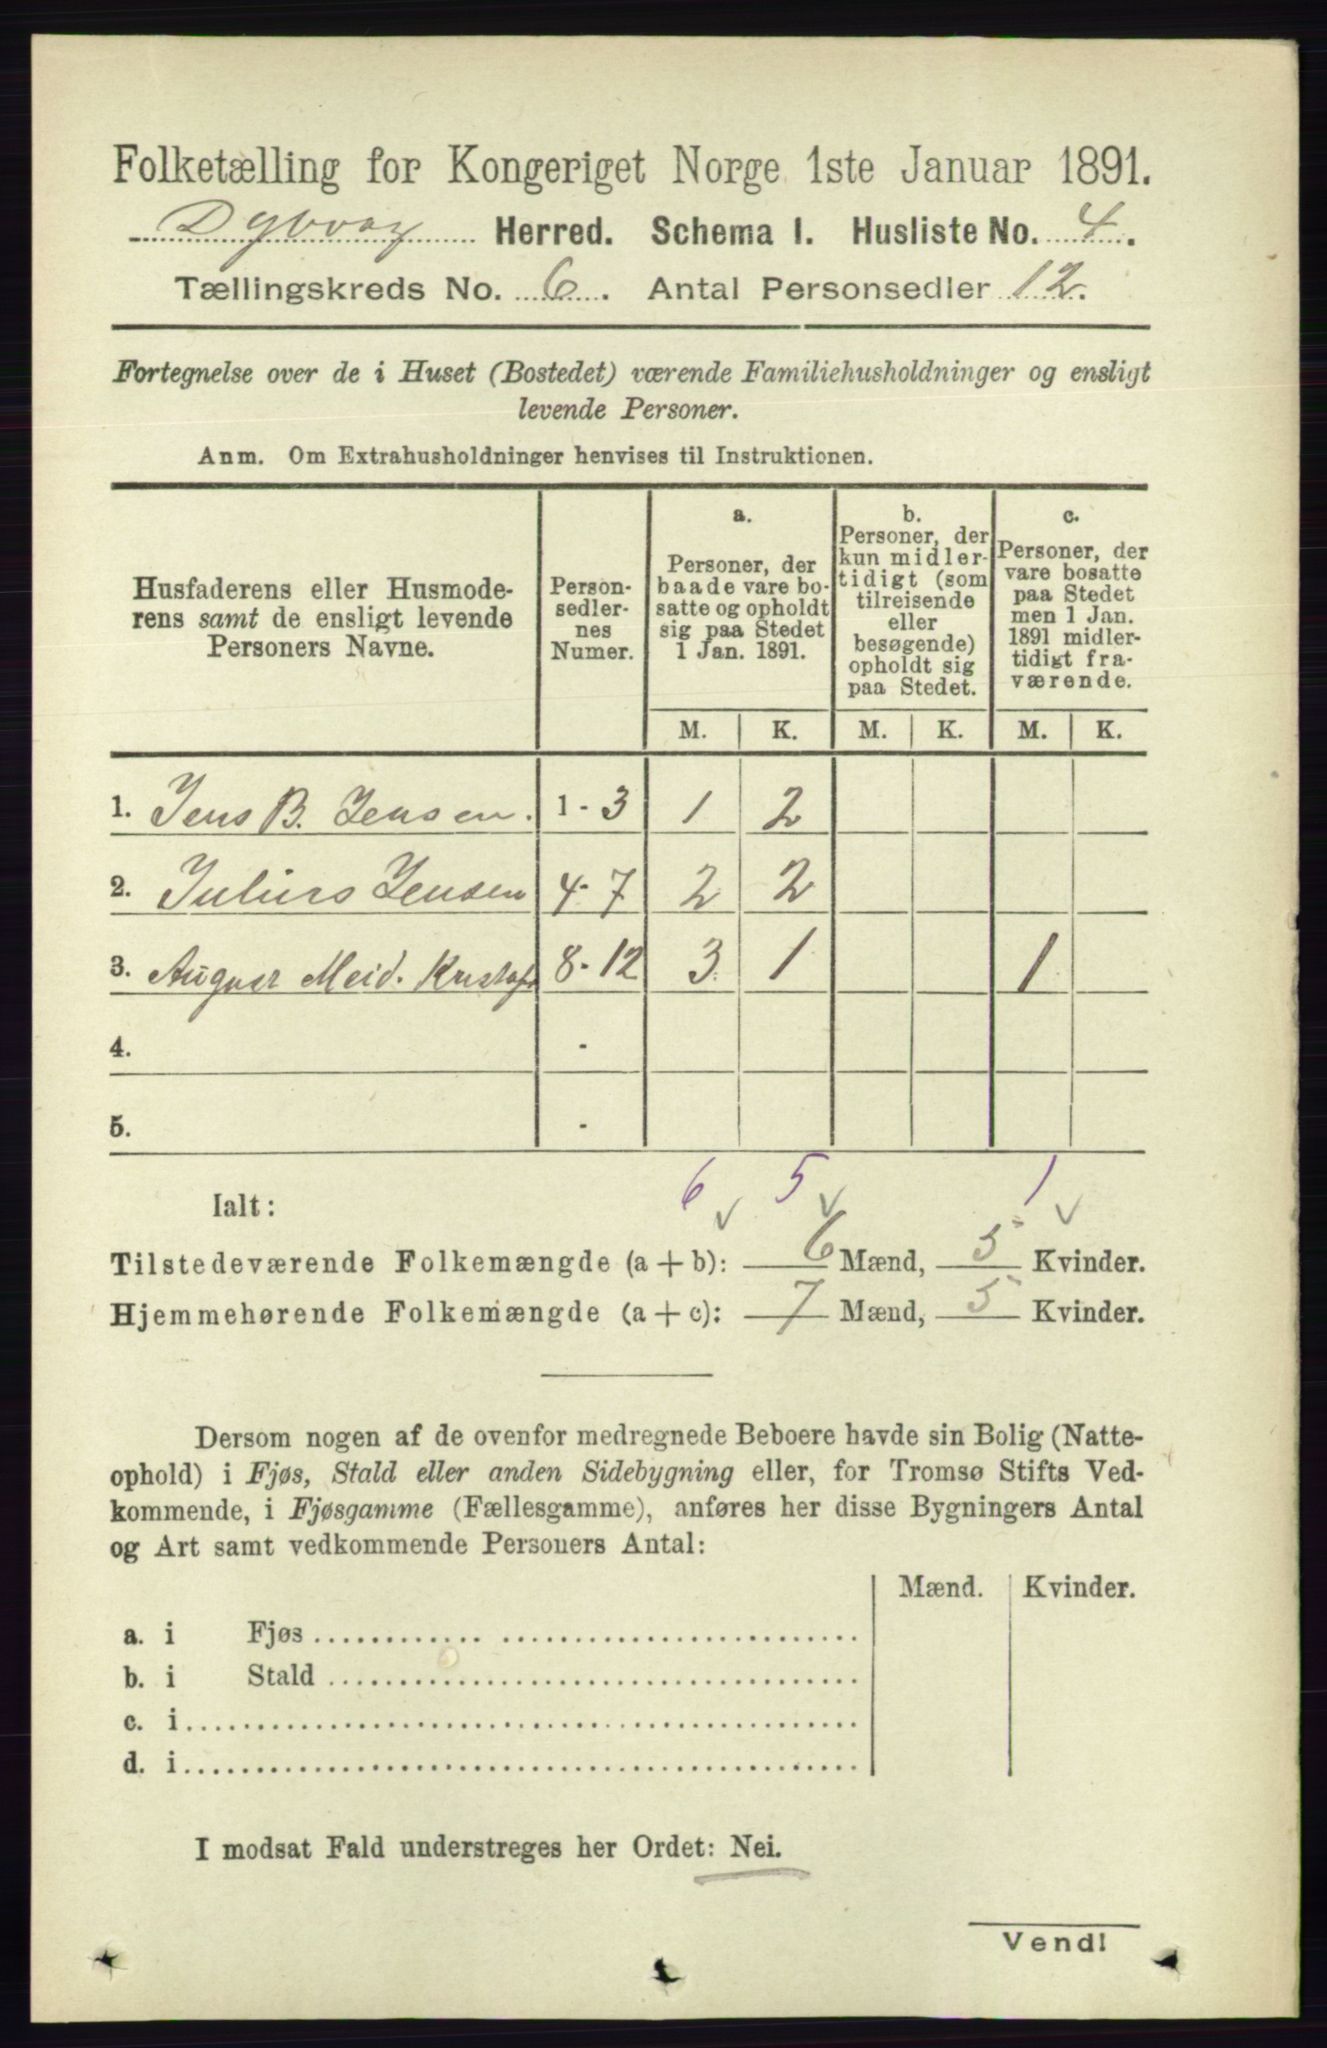 Folketælling for Kongeriget Norge 1ste Januar 1891.
Dybvaag Herred. Schema I. Husliste No. 4.
Tællingskreds No. 6. Antal Personsedler 12.
Fortegnelse over de i Huset (Bostedet) værende Familiehusholdninger og ensligt
levende Personer.
Anm. Om Extrahusholdninger henvises til Instruktionen.
Husfaderens eller Husmode-
rens samt de ensligt levende
Personers Navne.
Person-
sedler-
nes
Numer.
a.
Personer, der
baade vare bo-
satte og opholdt
sig paa Stedet
1 Jan. 1891.
b.
Personer, der
kun midler-
tidigt (som
tilreisende
eller
besøgende)
opholdt sig
paa Stedet.
c.
Personer, der
vare bosatte
paa Stedet
men 1 Jan.
1891 midler-
tidigt fra-
værende.
M. K. M. K. M. K.
1. Jens B. Jensen. 1 - 3 1 2
2. Julius Jensen 4 - 7 2 2
3. August Meid. 8 - 12 3 1 1
4. -
5. -
Ialt: 6 5 1
Tilstedeværende Folkemængde (a + b): 6 Mænd, 5 Kvinder.
Hjemmehørende Folkemængde (a + c): 7 Mænd, 5 Kvinder.
Dersom nogen af de ovenfor medregnede Beboere havde sin Bolig (Natte-
ophold) i Fjøs, Stald eller anden Sidebygning eller, for Tromsø Stifts Ved-
kommende, i Fjøsgamme (Fællesgamme), anføres her disse Bygningers Antal
og Art samt vedkommende Personers Antal:
Mænd. Kvinder.
a. i Fjøs
b. i Stald
c. i
d. i
I modsat Fald understreges her Ordet: Nei.
Vend!